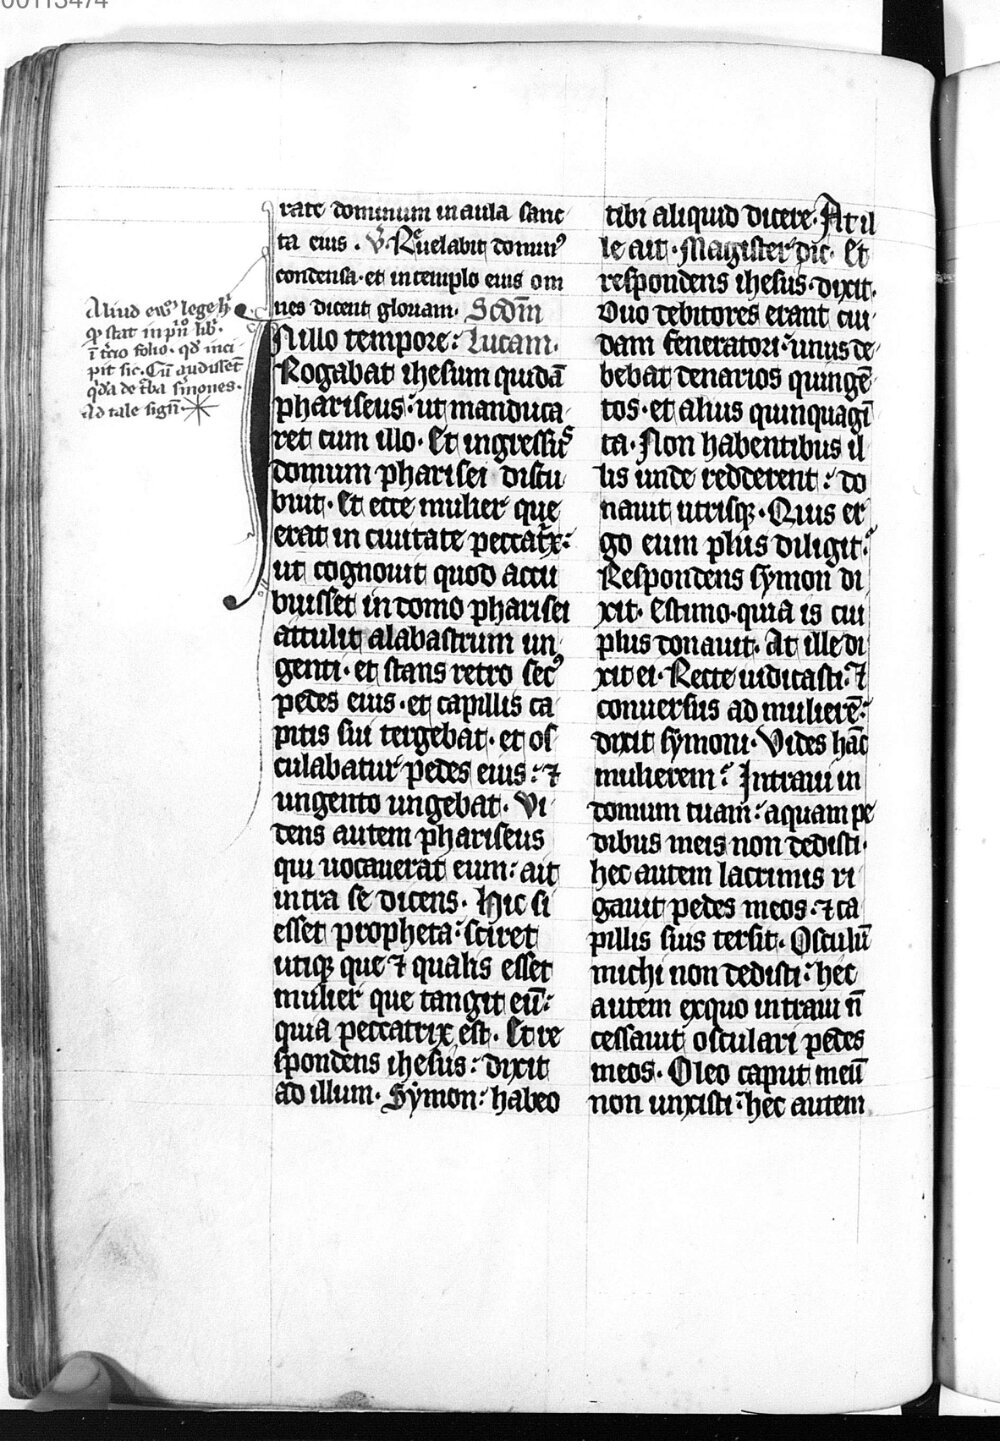 00113474
rate dominum in aula sanc
ta eius . V̾ Reuelabit domin⁹
condensa · et in templo eius om
nes dicent gloriam · Scdm̄
IN illo tempore : Lucam ·
Rogabat ihesum quidā
phariseus : ut manduca
ret cum illo · Et ingressus
domum pharisei discu
buit · Et ecce mulier que
erat in ciuitate peccatͥx :
ut cognouit quod accu
buisset in domo pharisei
attulit alabastrum un
genti · et stans retro sec⁹
pedes eius · et capillis ca
pitis sui tergebat · et os
culabatur pedes eius : ⁊
ungento ungebat · Vi
dens autem phariseus
qui uocauerat eum : ait
intra se dicens · Hic si
esset propheta : sciret
utiqꝫ que ⁊ qualis esset
mulier que tangit eū :
quia peccatrix est · Et re
spondens ihesus : dixit
ad illum · Symon : habeo
tibi aliquid dicere · At il
le ait · Magister dic · Et
respondens ihesus · dixit ·
Duo debitores erant cui
dam feneratori : unus de
bebat denarios quingē
tos · et alius quinquagī
ta · Non habentibus il
lis unde redderent : do
nauit utrisqꝫ · Quis er
go eum plus diligit :
Respondens symon di
xit · Estimo · quia is cui
plus donauit · At ille di
xit ei · Recte iudicasti · ⁊
conuersus ad mulierē :
dixit symoni · Vides hāc
mulierem : Intraui in
domum tuam : aquam pe
dibus meis non dedisti ·
hec autem lacrimis ri
gauit pedes meos · ⁊ ca
pillis suis tersit · Osculū
michi non dedisti : hec
autem exquo intraui n̄
cessauit osculari pedes
meos · Oleo caput meū
non unxisti : hec autem
Aliud ew̄ lege
qͦ stat in libͦ
tͨcio folio · qd inci
pit sic · Cū audisset
qͥda de tͬba sͬmones ·
Ad tale sign̄ ·